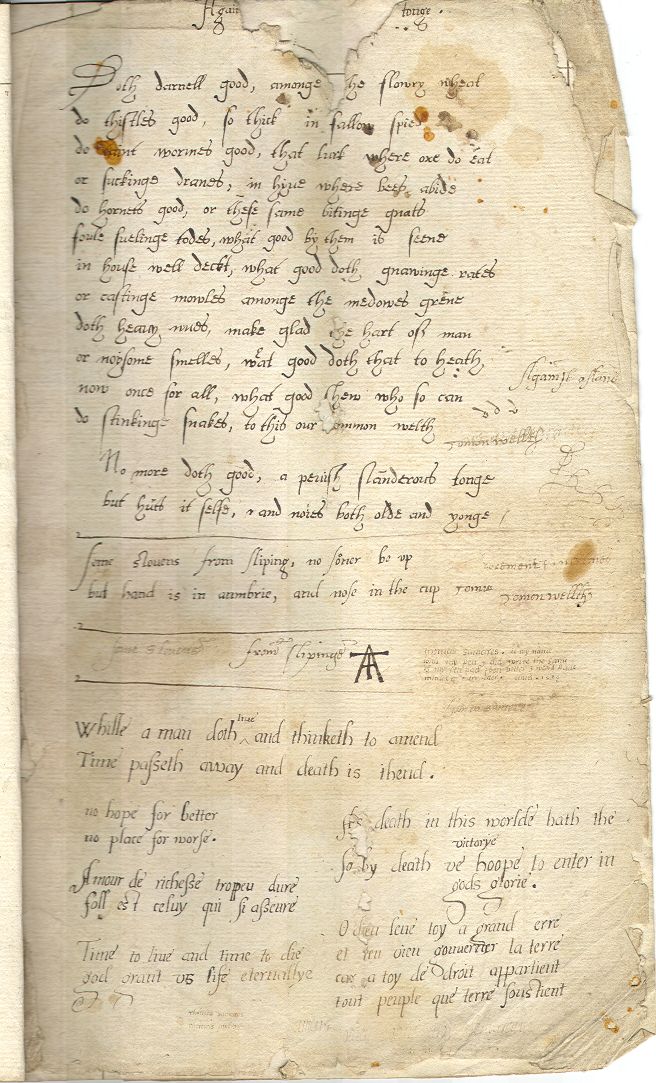 Again tonge.
Doth darnell good, amonge he flowry wheat
do thistles good, so thick in fallow spied
do taint wormes good, that lurk where oxe do eat
or suckinge dranes, in hyue where bees abide
do hornets good, or these same bitinge gnats
foule suelinge todes, what good by them is seene
in house well deckt, what good doth gnawinge rates
or castinge mowles amonge the medowes grene
doth heauy nues, make glad the hart off man
or noysome smelles, wat good doth that to heath
now once for all, what good shew who so can
do stinkinge snakes, to this our common welth
Against a sland
No more doth good, a peuish slanderous tonge
but hurts it selfe, and noies both olde and yonge
comonwelth
some sleuens from sliping, no soner be vp
but hand is in aumbrie, and nose in the cup
comonwellth
from slipinge
Whille a man doth liue and thinketh to amend
Time passeth away and death is thend.
no hope for better
no place for worse.
Amour de richesse trop peu dure
foll est celuy qui si asseure
Time to liue and time to die
god grant vs life eternallye
death in this worlde hath the
victorye
so by death we hoope to enter in
gods glorie.
O dieu leue toy a grand erre
et vien gouuerner la terre
car a toy de droit appartient
tout peuple que terre soustient